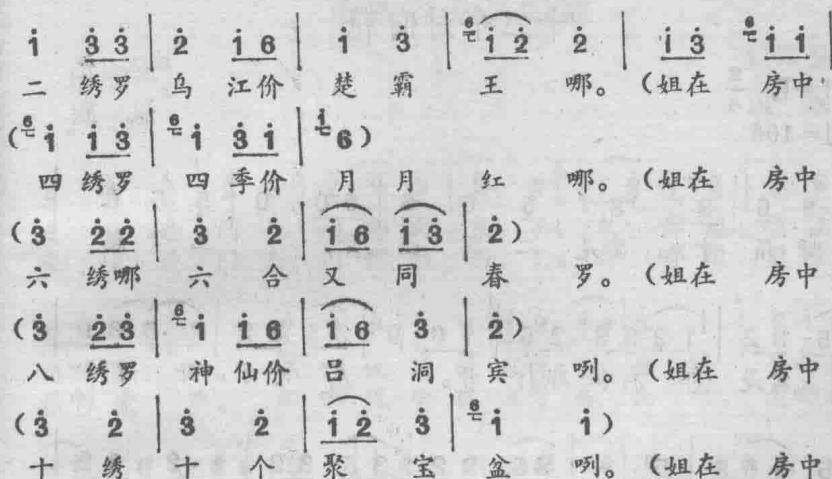 i 3 3 | 2 i 6 | i 3 | 6 i 2 2 | i 3 6 i i |
二 绣罗 乌 江价 楚 霸 王 哪。(姐在 房中
(6 i i 3 | 6 i 3 i | i 6)
四 绣罗 四 季价 月 月 红 哪。(姐在 房中
(3 2 2 | 3 2 | i 6 i 3 | 2)
六 绣哪 六 合 又 同 春 罗。(姐在 房中
(3 2 3 | 6 i i 6 | i 6 3 | 2)
八 绣罗 神 仙价 吕 洞 宾 咧。(姐在 房中
(3 2 | 3 2 | i 2 3 | 6 i i)
十 绣 十 个 聚 宝 盆 咧。(姐在 房中